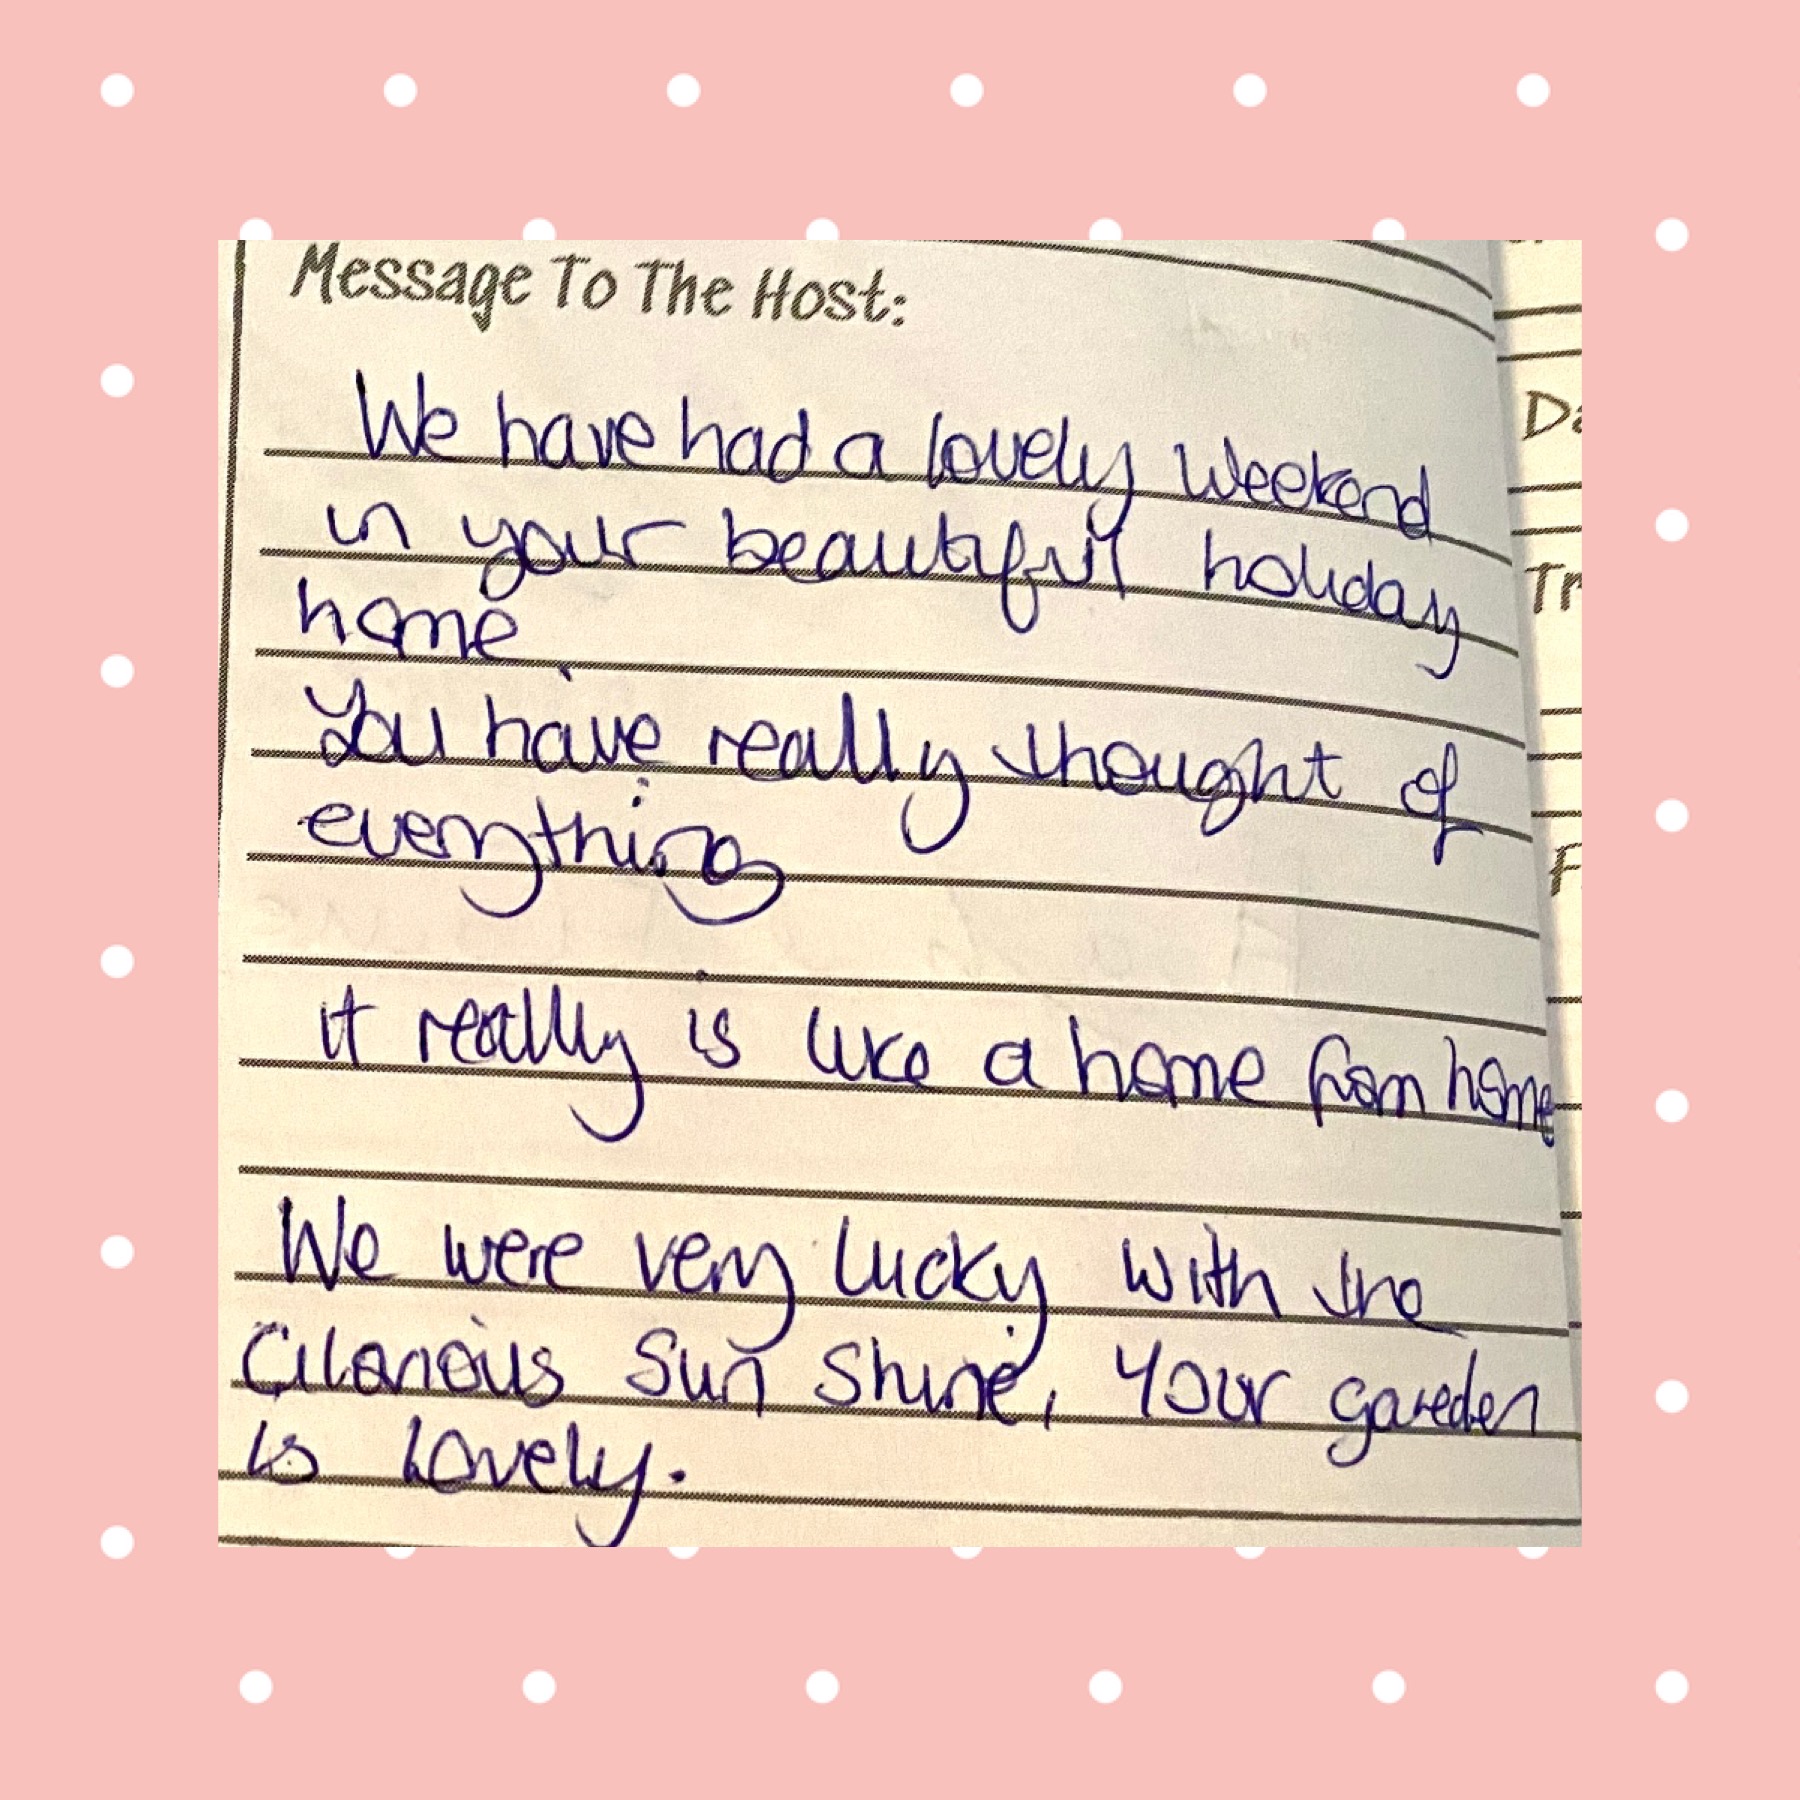 Message To The Host:
We have had a lovely weekend
in your beautiful holiday
home
You have really thought of
everything
it really is like a home from home
We were very lucky with the
Glorious Sun Shine, Your gareden
is lovely.
Da
Tr
F